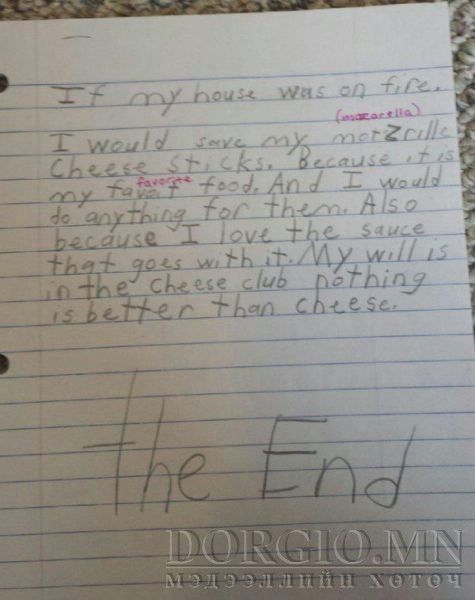 If my house was on fire.
(mozarella)
I would save my motzrille
cheese sticks. Because it is
favorite
my favet food. And I would
do anything for them. Also
because I love the sauce
that goes with it. My will is
in the cheese club nothing
is better than cheese.
the End
DORGIO.MN
МЭДЭЭЛЛИЙН ХӨТӨЧ